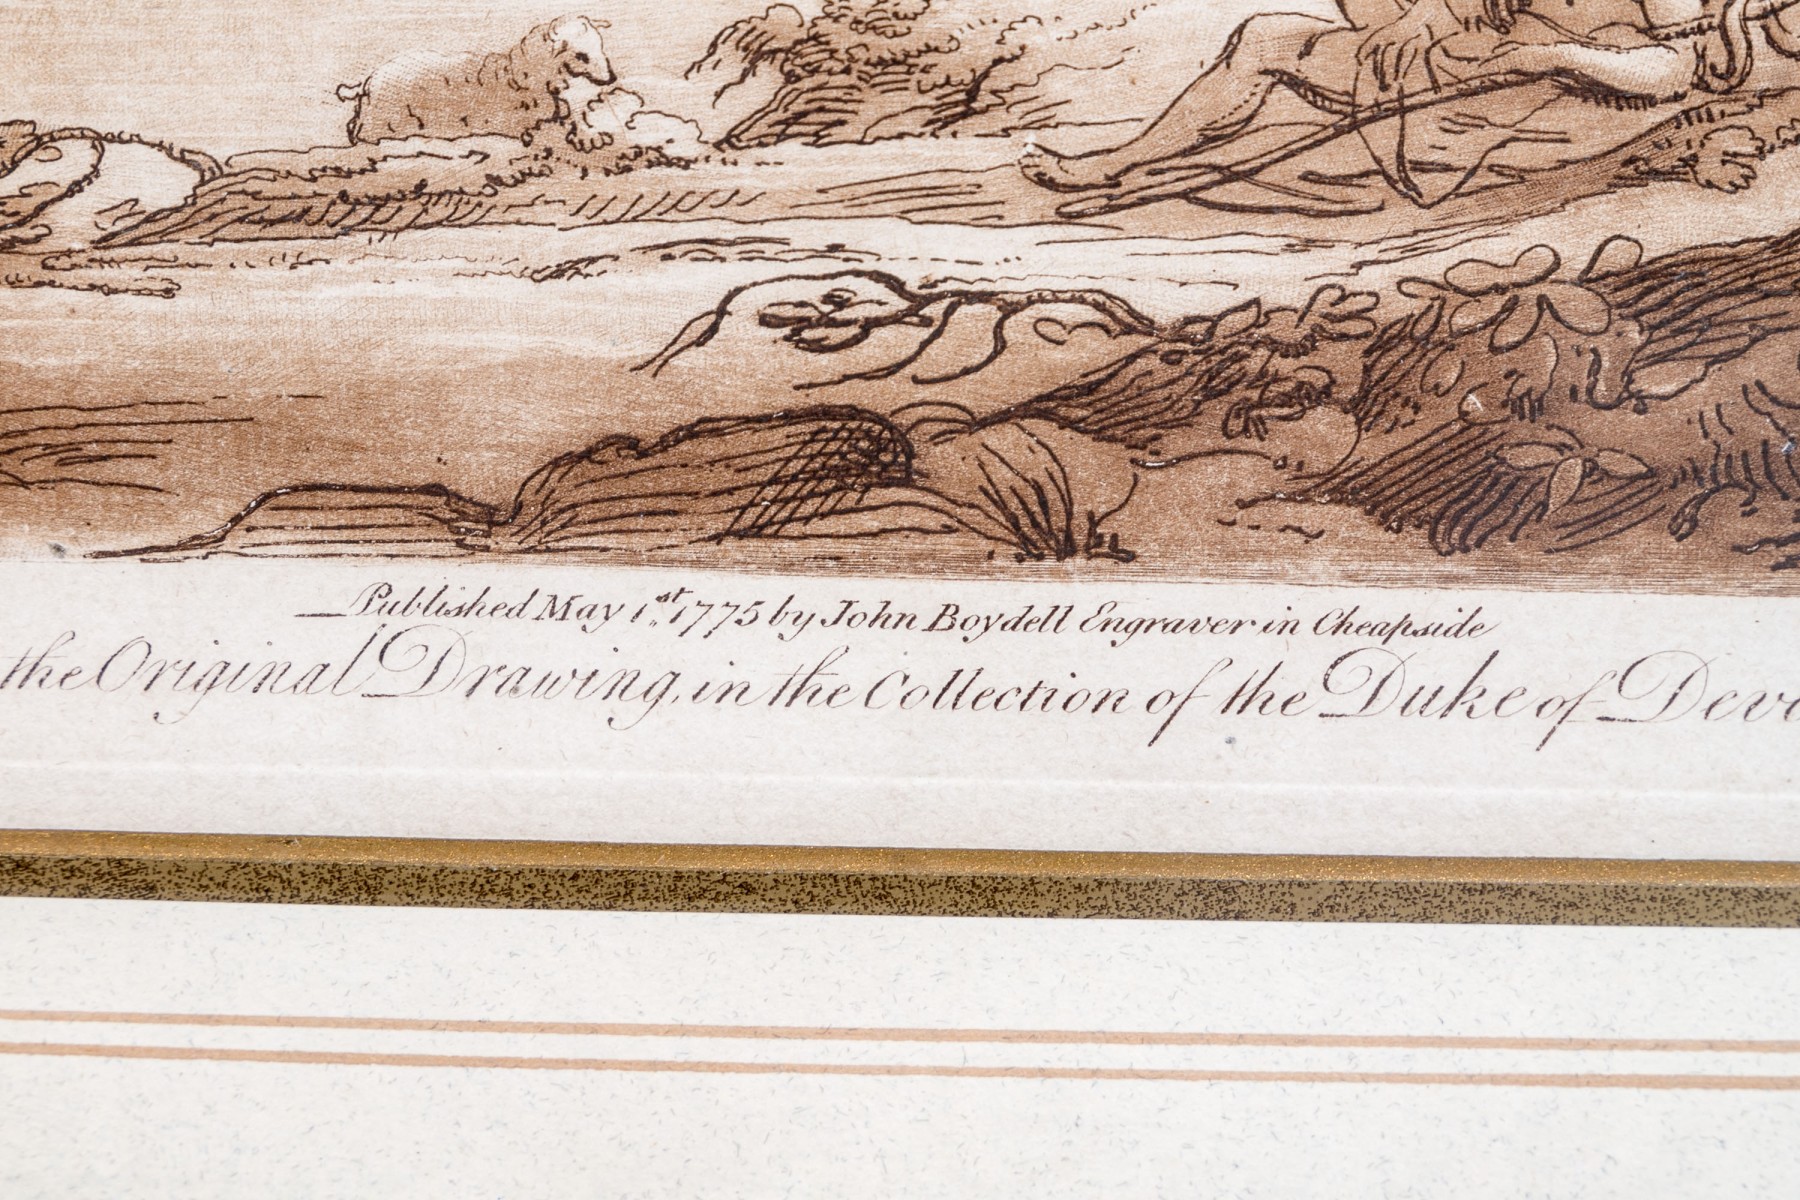 Published May 1st 1775 by John Boydell Engraver in Cheapside
the Original Drawing, in the Collection of the Duke of Dev